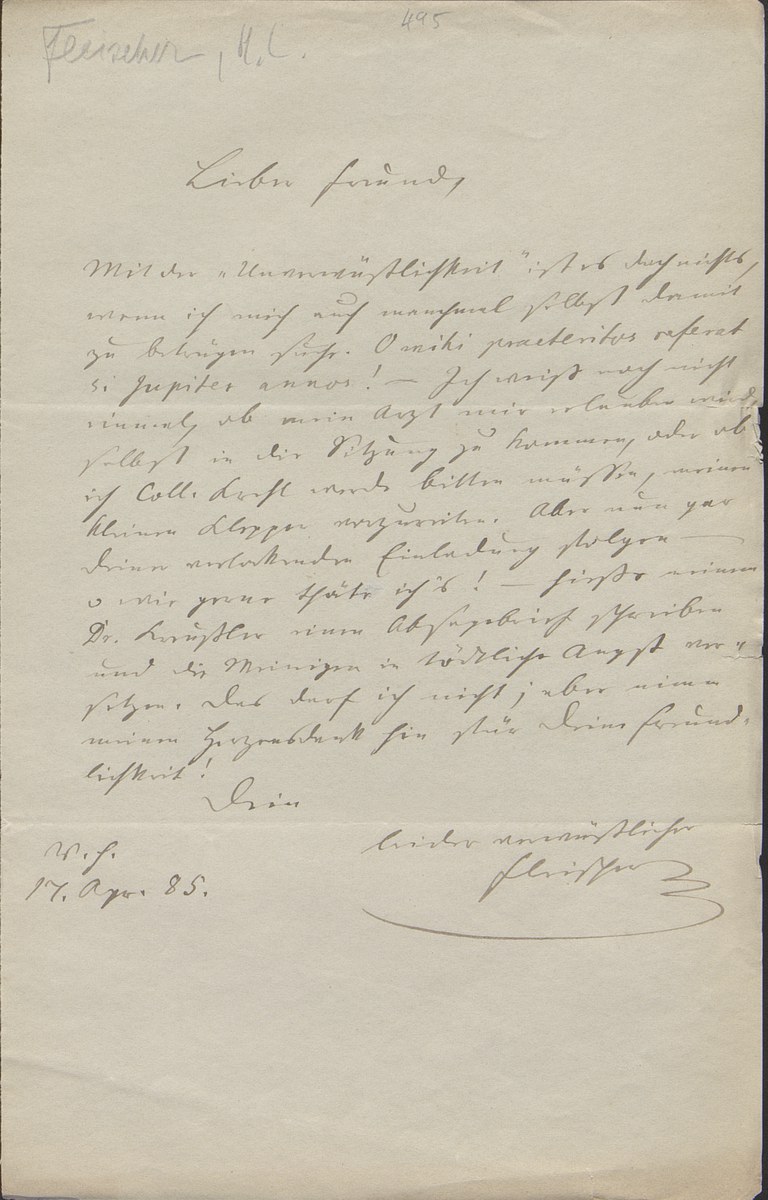 495
Fleischer, H. L.
Lieber Freund,
Mit der „Unverwüstlichkeit" ist es doch nichts,
wenn ich mich auch manchmal selbst damit
zu betrügen suche. O mihi praeteritos referat
si Jupiter annos! — Ich weiß noch nicht
einmal, ob mein Arzt mir erlauben wird,
selbst in die Sitzung zu kommen, oder ob
ich Coll. Krehl werde bitten müssen, meinen
kleinen Klepper vorzureiten. Aber nun gar
Deiner verlockenden Einladung folgen —
o wie gerne thäte ich's! — hieße meinem
Dr. Kreußler einen Absagebrief schreiben
und die Meinigen in tödtliche Angst ver-
setzen. Das darf ich nicht; aber nimm
meinen Herzensdank hin für Deine Freund-
lichkeit!
Dein
leider verwüstlicher
Fleischer
v. H.
17. Apr. 85.